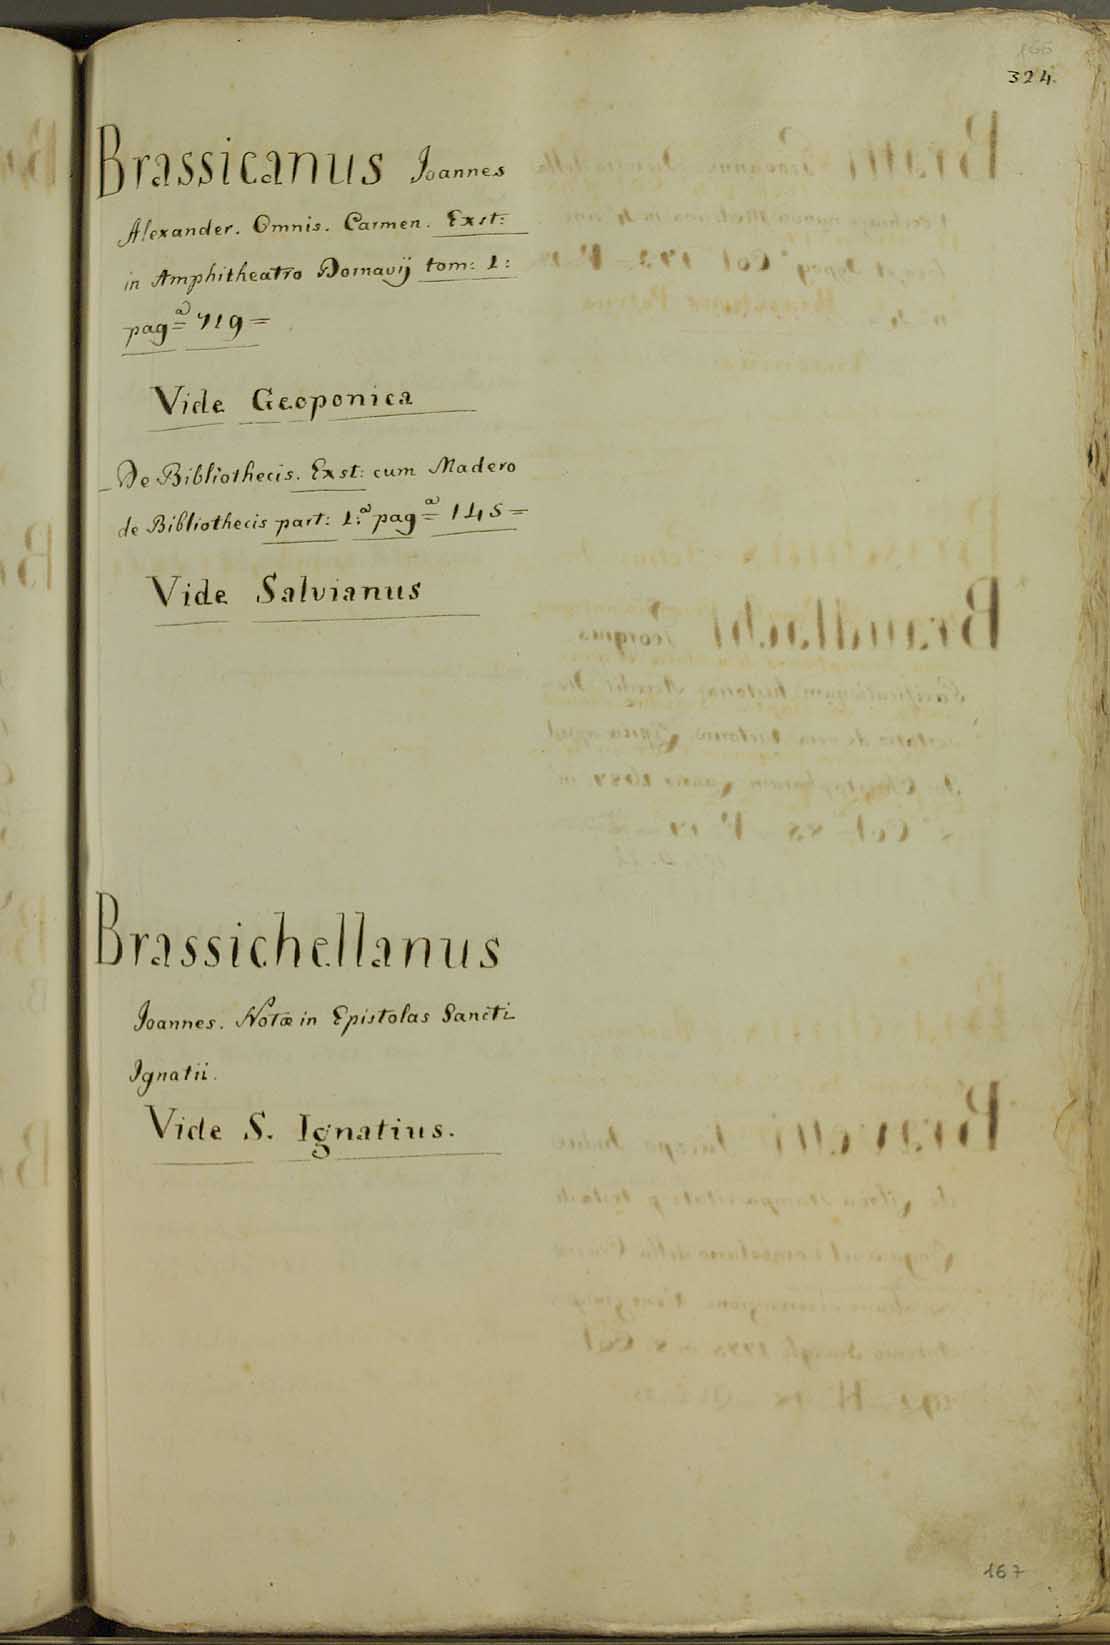 166
324.
Brassicanus Joannes
Alexander. Omnis. Carmen. Exst:
in Amphitheatro Dornavij tom: 1:
pag=ª 719=
Vide Geoponica
De Bibliothecis. Exst: cum Madero
de Bibliothecis part: 1:ª pag=ª 145=
Vide Salvianus
Brassichellanus
Joannes. Notæ in Epistolas Sancti
Ignatii.
Vide S. Ignatius.
167